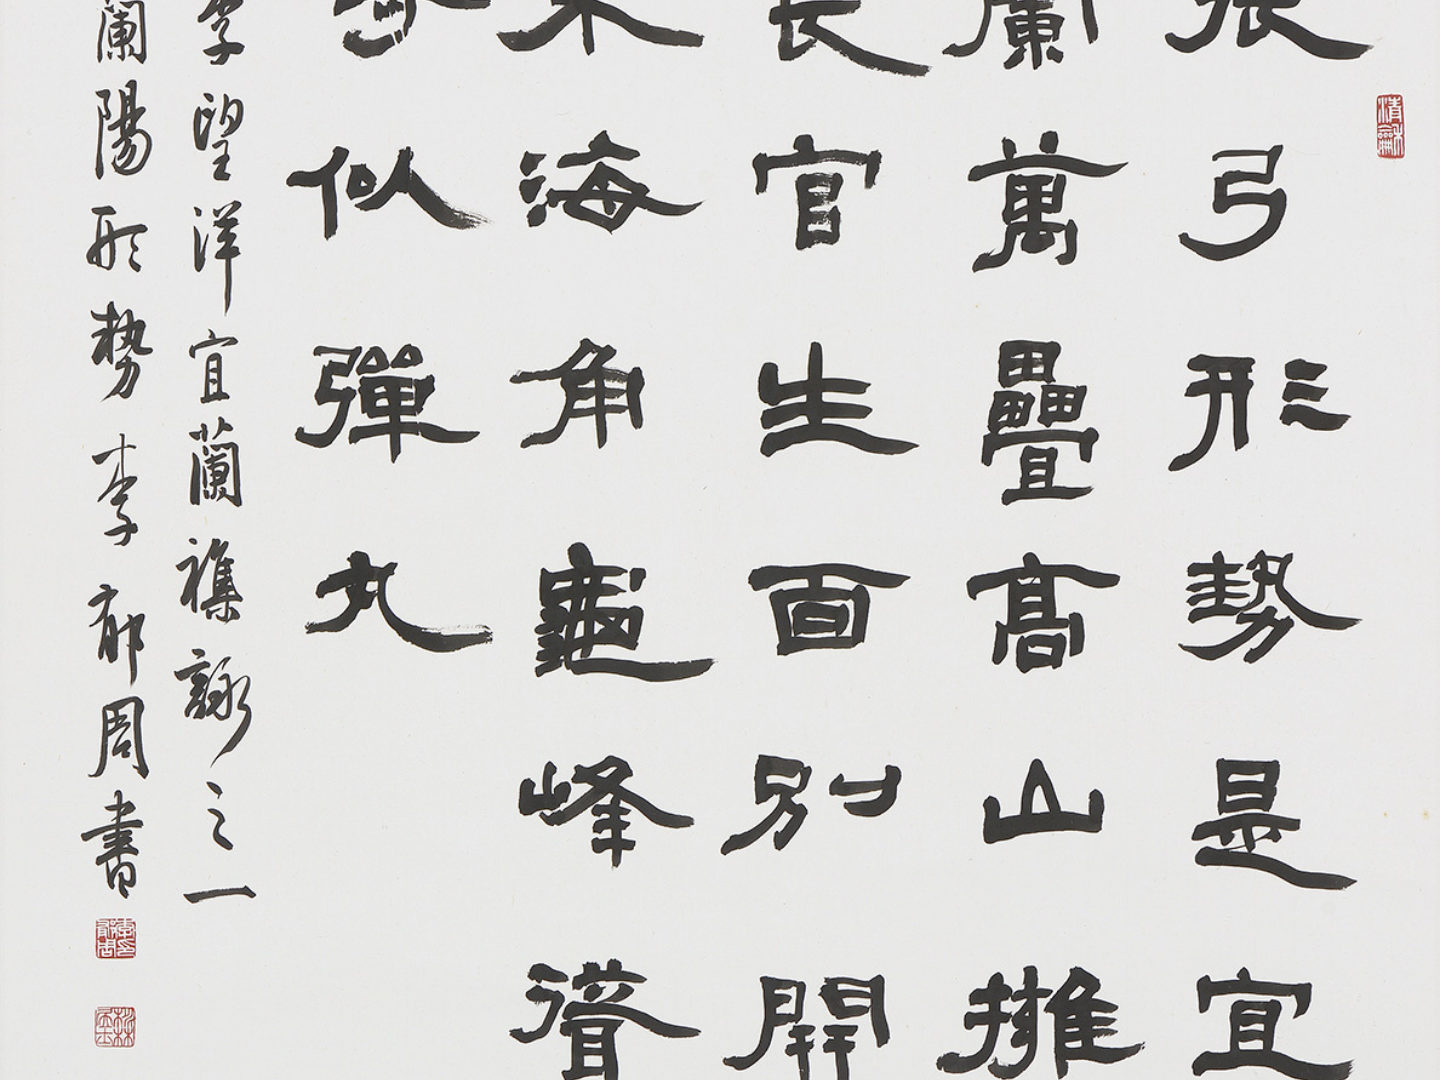 張弓形勢是宜
蘭萬疊高山擁
長官生面別開
東海角龜峰聳
似彈丸
李望洋宜蘭襍詠之一
蘭陽形勢李郁周書